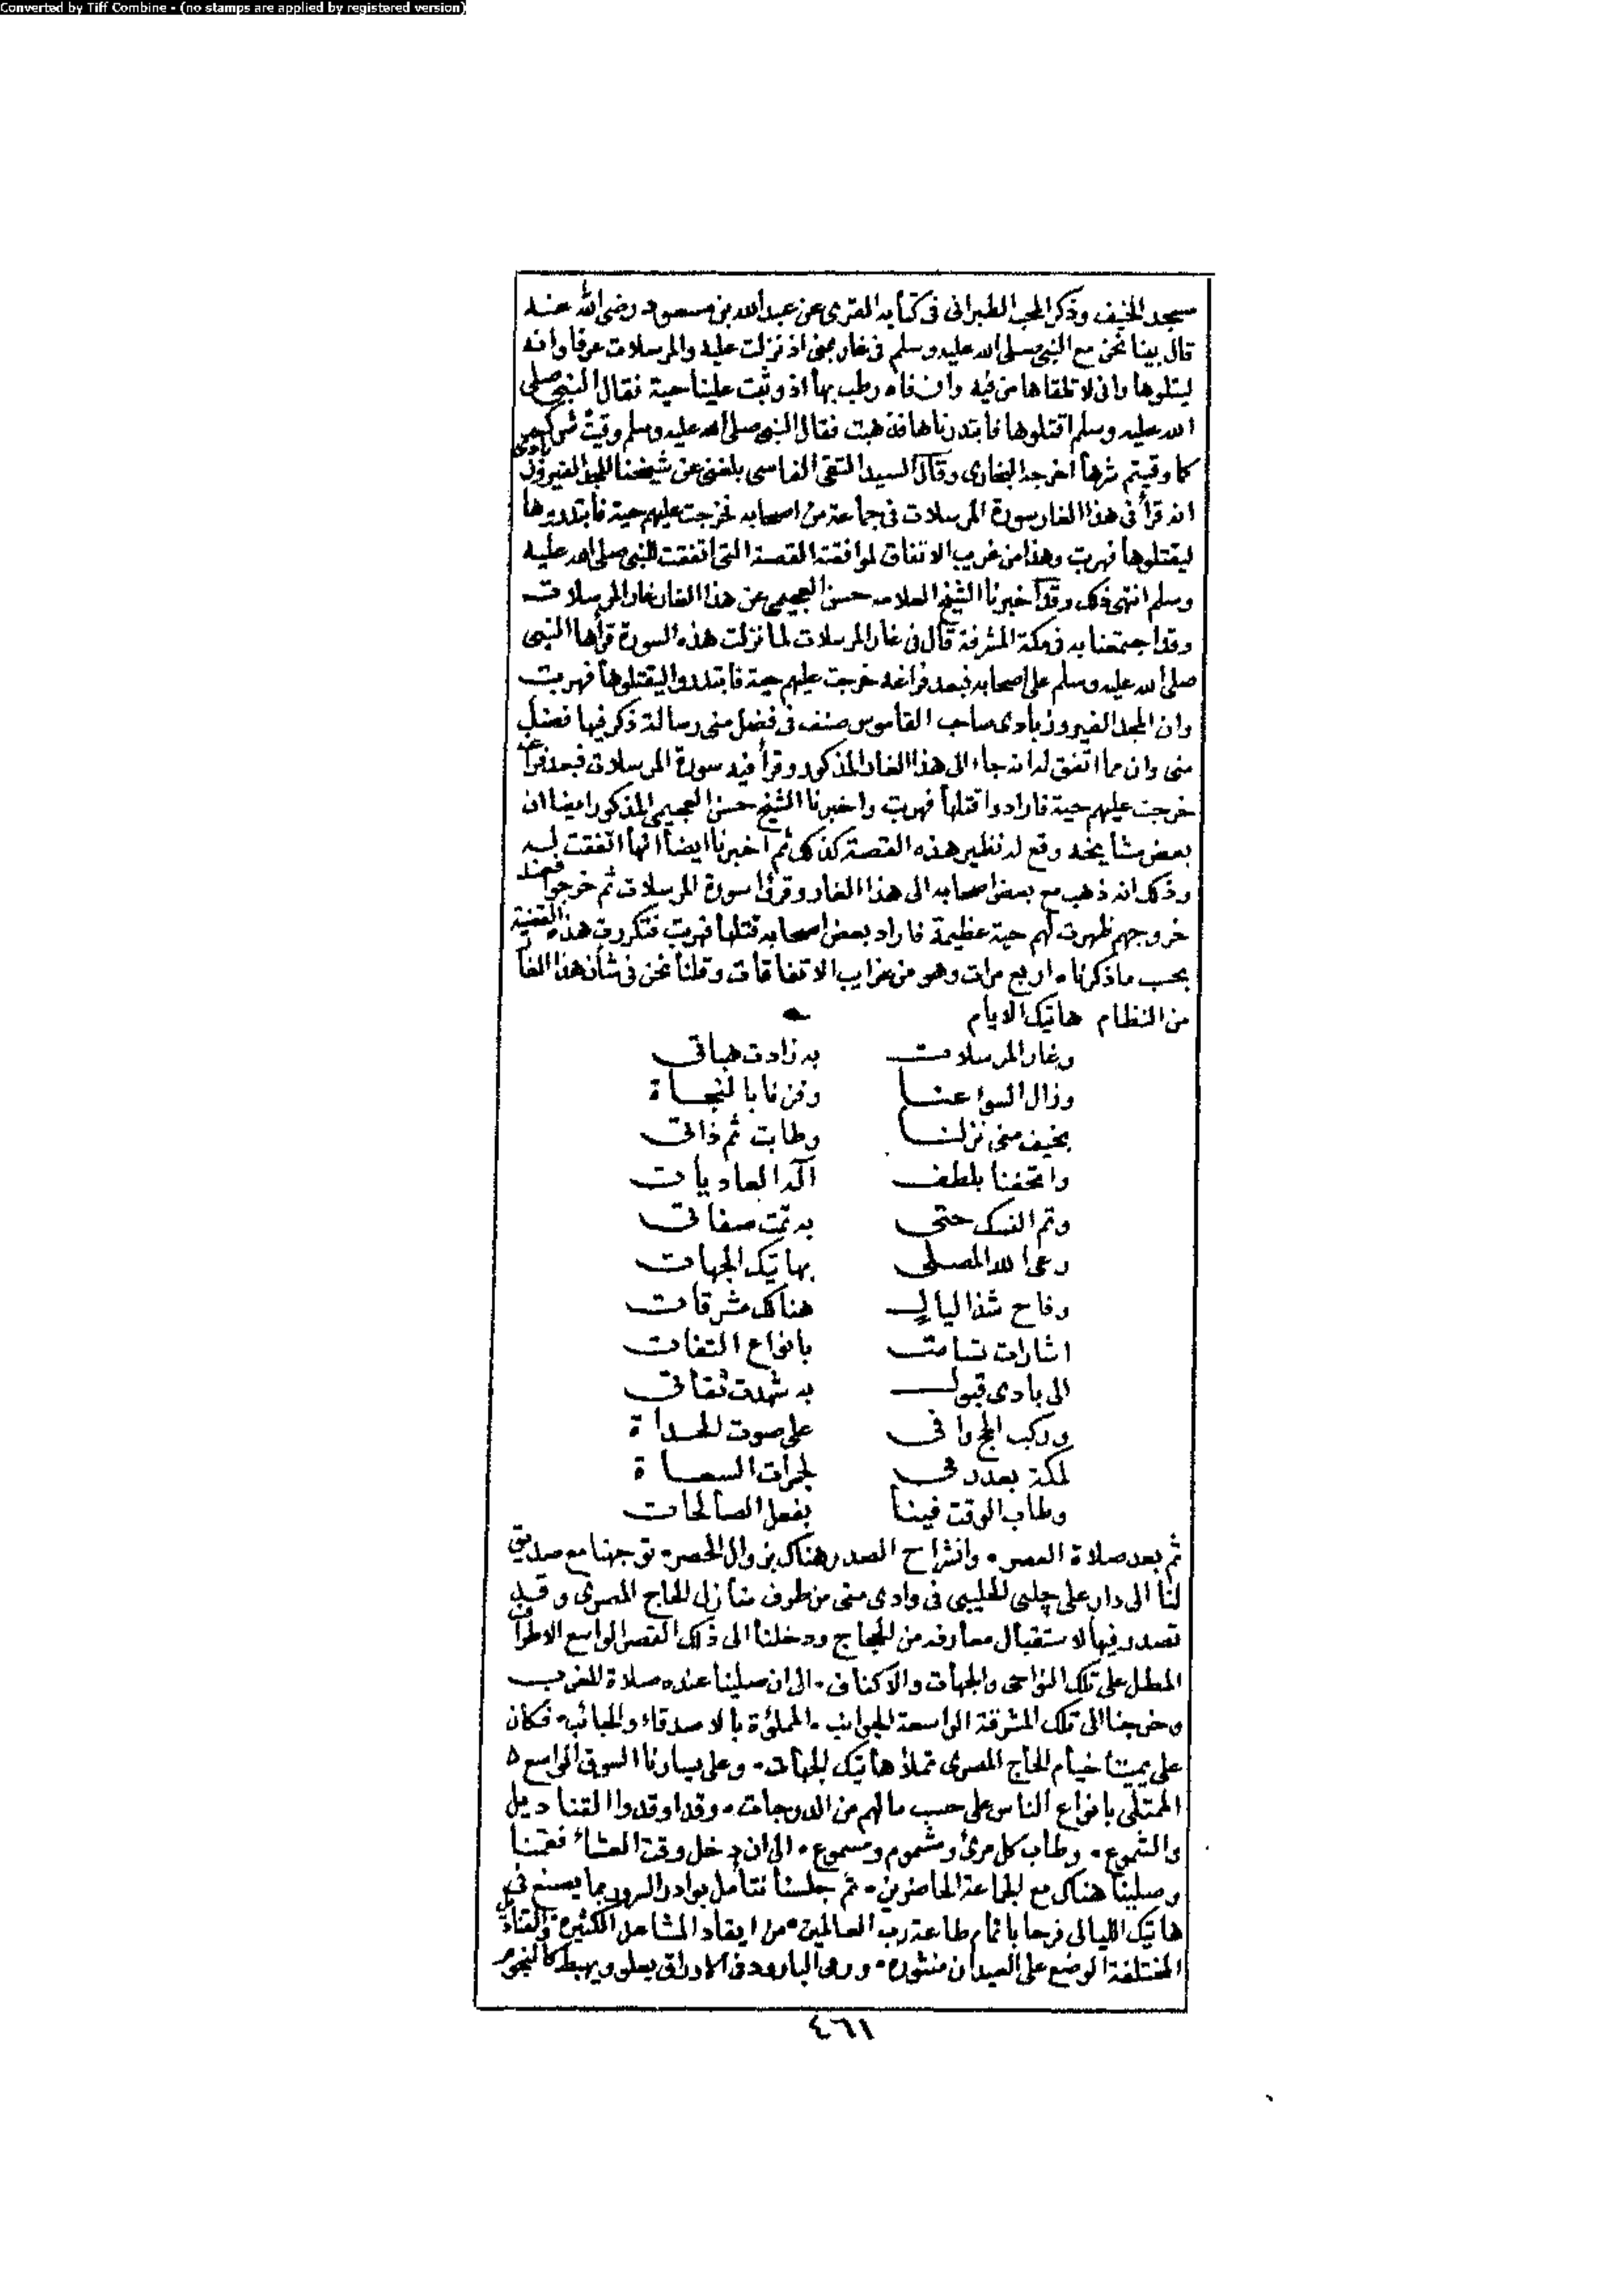 Converted by Tiff Combine - (no stamps are applied by registered version)
مسجد الخيف وذكر المحب الطبرانى فى كتابه القرى عن عبد الله بن مسعود رضى الله عنه
قال بينا نحن مع النبى صلى الله عليه وسلم فى غار بمنى اذ نزلت عليه والمرسلات عرفا وانه
ليتلوها وانى لاتلقاها من فيه وان فاه رطب بها اذ وثبت علينا حية فقال النبى صلى
الله عليه وسلم اقتلوها فابتدرناها فذهبت فقال النبى صلى الله عليه وسلم وقيت شركم
كما وقيتم شرها اخرجه البخارى وقال السيد التقى الفاسى بلغنى عن شيخنا المجد الفيروزابادى
انه قرأ فى هذا الغار سورة المرسلات فى جماعة من اصحابه فخرجت عليهم حية فابتدروها
ليقتلوها فهربت وهذا من غريب الاتفاق لموافقة القصة التى اتفقت للنبى صلى الله عليه
وسلم انتهى ذلك وقد اخبرنا الشيخ العلامه حسن العجيمى عن هذا الغار غار المرسلات
وقد اجتمعنا به فى مكة المشرفة قال فى غار المرسلات لما نزلت هذه السورة قرأها النبى
صلى الله عليه وسلم على اصحابه فبعد فراغه خرجت عليهم حية فابتدروا ليقتلوها فهربت
وان المجد الفيروزبادى صاحب القاموس صنف فى فضل منى رسالة ذكر فيها فضل
منى وان مما اتفق له انه جاء الى هذا الغار المذكور وقرأ فيه سورة المرسلات فبعد فراغه
خرجت عليهم حية فارادوا قتلها فهربت واخبرنا الشيخ حسن العجيمى المذكور ايضا ان
بعض مشايخه وقع له نظير هذه القصة كذلك ثم اخبرنا ايضا انها اتفقت له
وذلك انه ذهب مع بعض اصحابه الى هذا الغار وقرئا سورة المرسلات ثم خرجوا فعند
خروجهم ظهرت لهم حية عظيمة فاراد بعض اصحابه قتلها فهربت فتكررت هذه القضية
بحسب ما ذكرناه اربع مرات وهو من غرايب الاتفاقات وقلنا نحن فى شأن هذا الغا
من النظام هاتيك الايام
وغار المرسلات به زادت هباتى
وزال السوء عنا وفزنا بالنجاة
بخيف منى نزلنا وطابت ثم ذاتى
واتحفنا بلطف اله العاديات
وتم النسك حتى به تمت صفاتى
رعى الله المصلى بهاتيك الجهات
وفاح شذا ليال هناك مشرقات
اشارات تسامت بانواع التفات
الى بادى قبول به شهدت ثقاتى
وركب الحج وافى على صوت الحداة
لمكة بعد رمى لجمرات السعاة
وطاب الوقت فينا بفعل الصالحات
ثم بعد صلاة العصر وانشراح الصدر هناك بزوال الحصر توجهنا مع صديق
لنا الى دار على چلبى فى وادى منى من طرف منازل الحاج المصرى وقد
تصدر فيها لاستقبال معارفه من الحجاج ودخلنا الى ذلك القصر الواسع الاطراف
المطل على تلك النواحى والجهات والاكناف الى ان صلينا عنده صلاة المغرب
وخرجنا الى تلك المشرفة الواسعة الجوانب المملؤة بالاصدقاء والحبائب فكان
على يميننا خيام الحاج المصرى تملأ هاتيك الجهات وعلى يسارنا السوق الواسع
الممتلى بانواع الناس على حسب ما لهم من الدرجات وقد اوقدوا القناديل
والشموع وطاب كل مرئ ومشموم ومسموع الى ان دخل وقت العشاء فقمنا
وصلينا هناك مع الجماعة الحاضرين ثم جلسنا نتأمل بوادر السرور بما يصنع فى
هاتيك الليالى فرحا باتمام طاعة رب العالمين من ايقاد المشاعل الكثيرة والقناديل
المختلفة الوضع على العيدان منثورة ورمى البارود فى الاوراق يعلو ويهبط كالنجوم
٤٦١